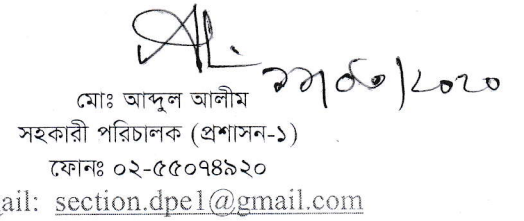 মোঃ আব্দুল আলীম
সহকারী পরিচালক (প্রশাসন-১)
ফোনঃ ০২-৫৫০৭৪৯২০
ail: section.dpe1@gmail.com